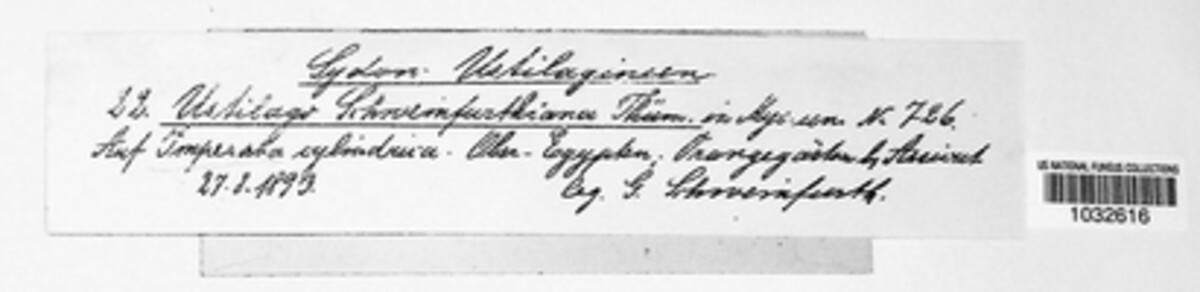 Sydow. Ustilagineen
22. Ustilago Schweinfurthiana Thüm. in Myc. un. N. 726.
Auf Imperata cylindrica. Ober-Egypten, Orangegärten b, Assiut
27.2.1893. leg. G. Schweinfurth.
US NATIONAL FUNGUS COLLECTIONS
1032616